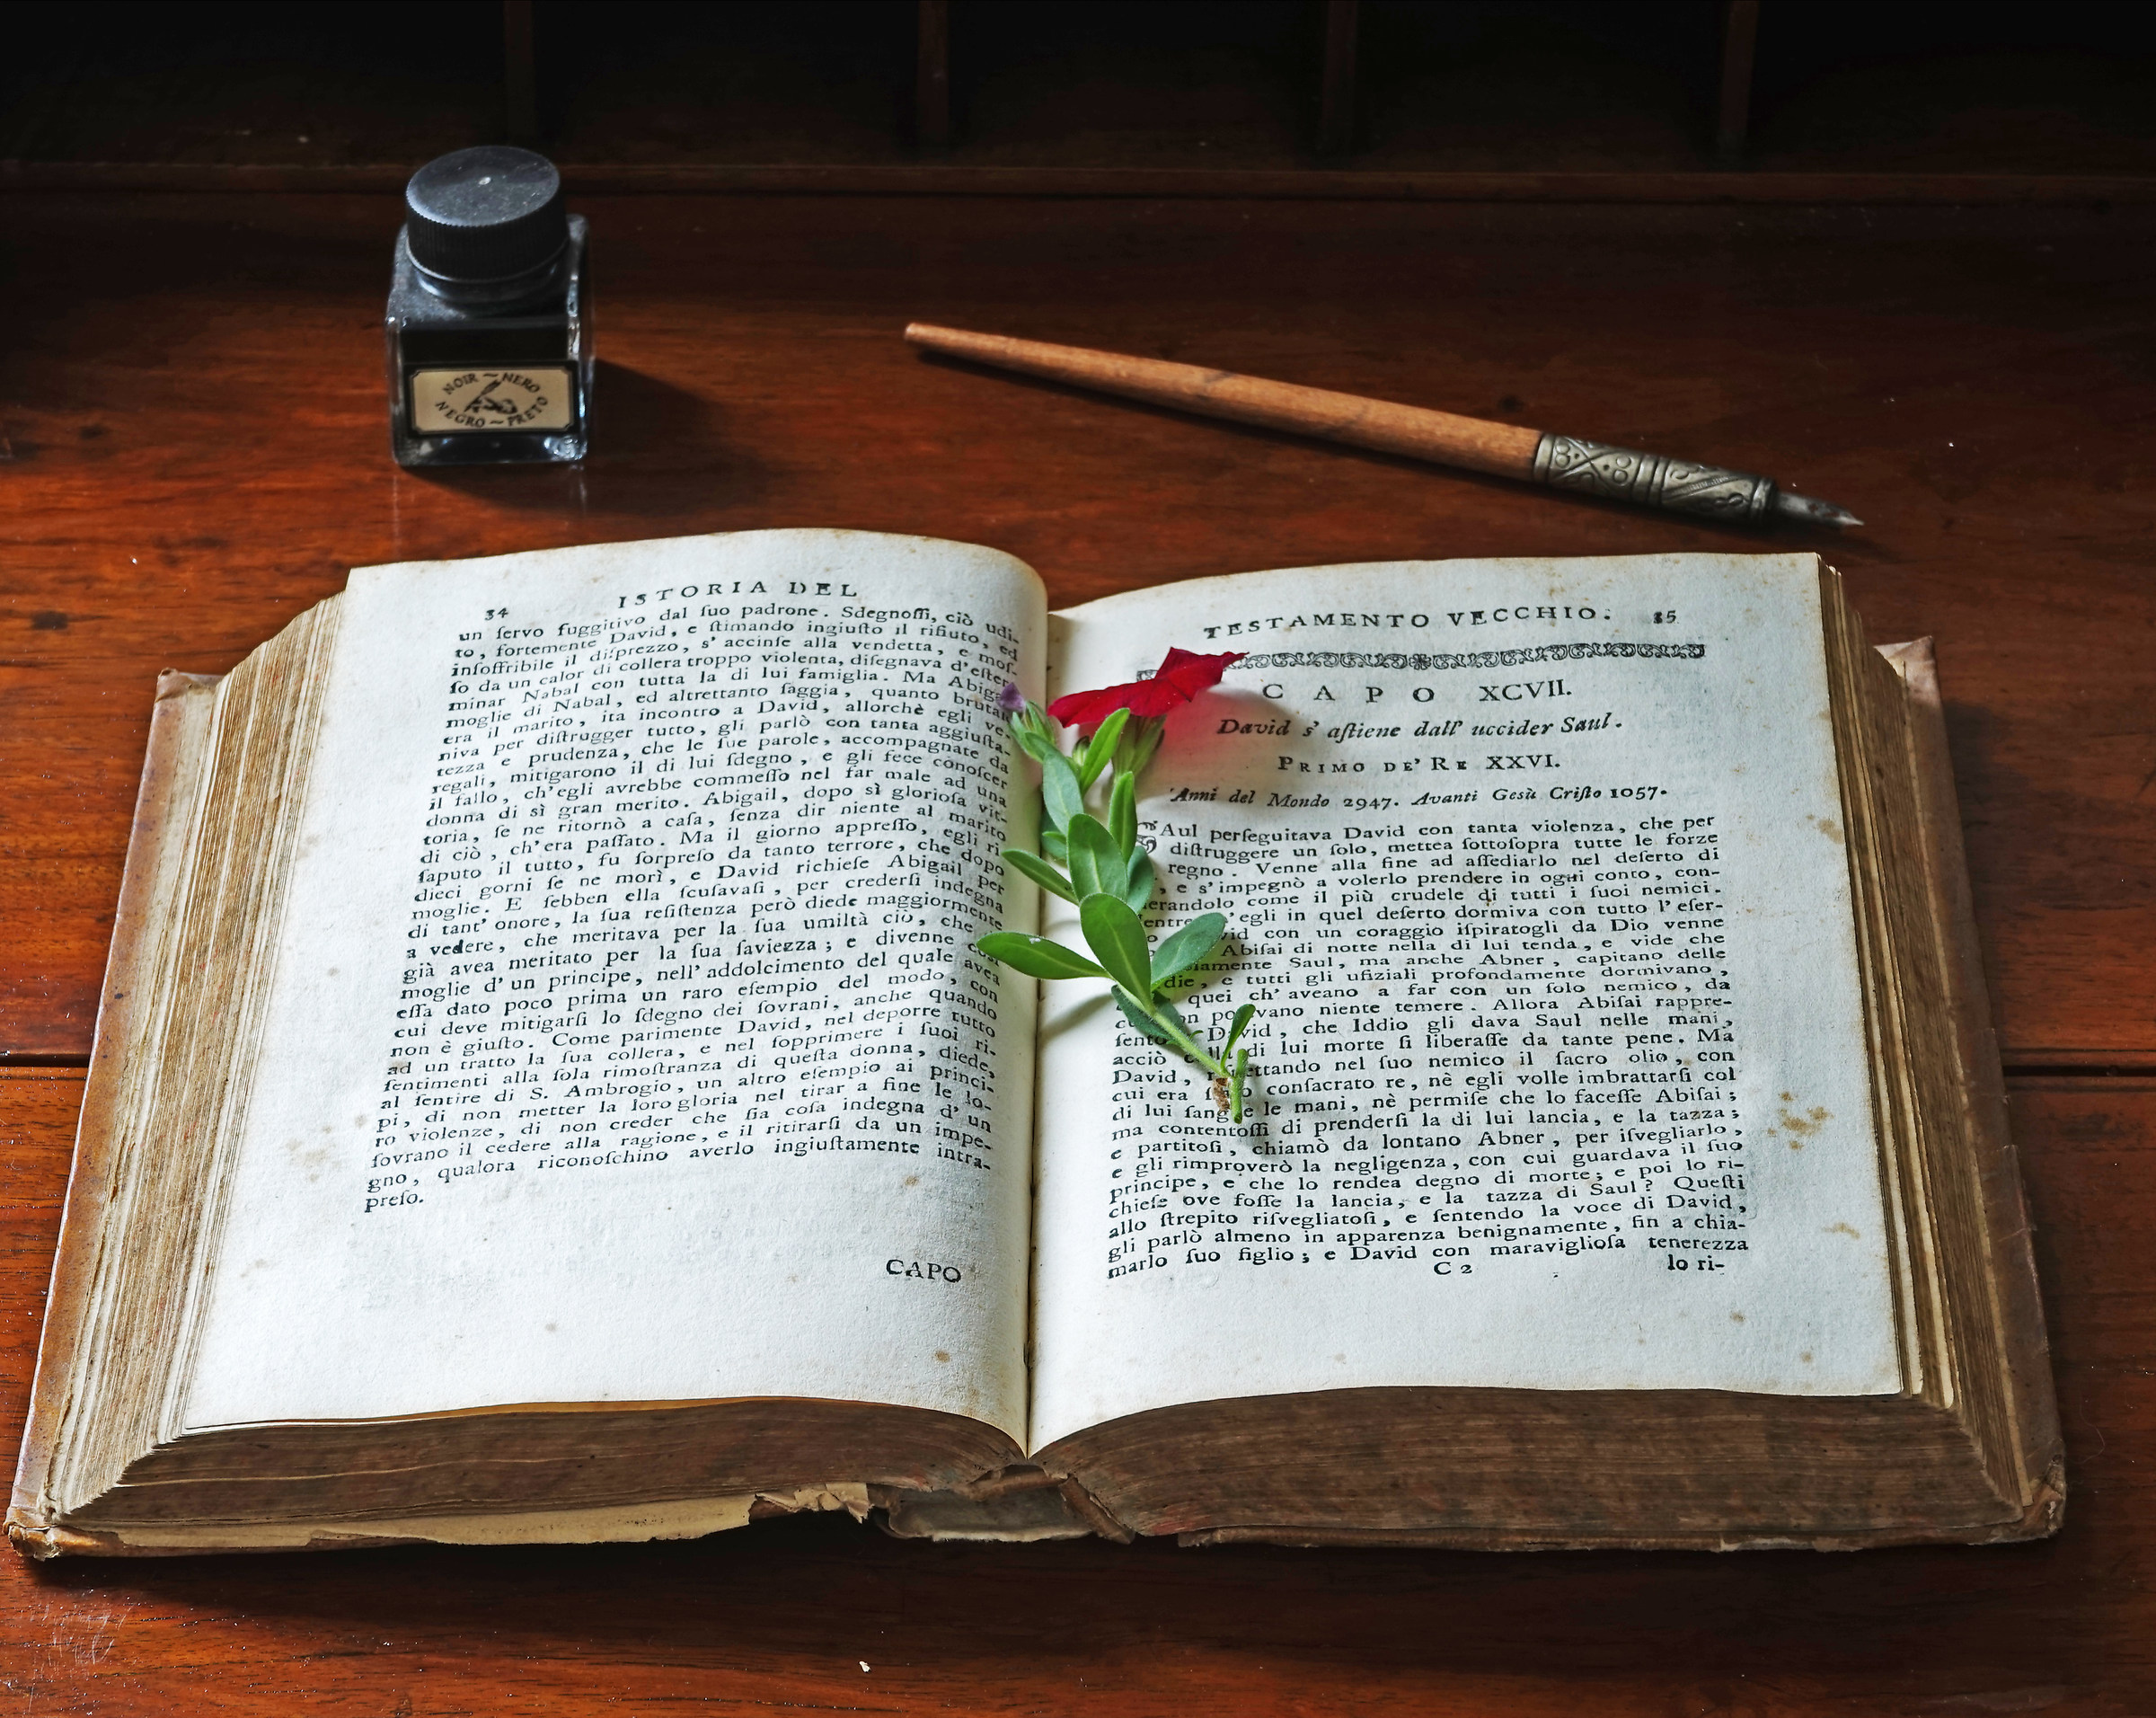 NOIR ~ NERO
NEGRO ~ PRETO
34 ISTORIA DEL
un ſervo fuggitivo dal ſuo padrone. Sdegnoſſi, ciò udi-
to, fortemente David, e ſtimando ingiuſto il rifiuto, ed
inſoffribile il diſprezzo, s' accinſe alla vendetta, e moſ-
ſo da un calor di collera troppo violenta, diſegnava d'eſter-
minar Nabal con tutta la di lui famiglia. Ma Abiga
moglie di Nabal, ed altrettanto ſaggia, quanto brutan
era il marito, ita incontro a David, allorchè egli ve-
niva per diſtrugger tutto, gli parlò con tanta aggiuſta-
tezza e prudenza, che le ſue parole, accompagnate da
regali, mitigarono il di lui ſdegno, e gli fece conoſcer
il fallo, ch'egli avrebbe commeſſo nel far male ad una
donna di sì gran merito. Abigail, dopo sì glorioſa vit-
toria, ſe ne ritornò a caſa, ſenza dir niente al marito
di ciò, ch'era paſſato. Ma il giorno appreſſo, egli ri
ſaputo il tutto, fu ſorpreſo da tanto terrore, che dopo
dieci gorni ſe ne morì, e David richieſe Abigail per
moglie. E ſebben ella ſcuſavaſi, per crederſi indegna
di tant' onore, la ſua reſiſtenza però diede maggiormente
a vedere, che meritava per la ſua umiltà ciò, che
già avea meritato per la ſua ſaviezza; e divenne così
moglie d'un principe, nell'addolcimento del quale avea
eſſa dato poco prima un raro eſempio del modo, con
cui deve mitigarſi lo ſdegno dei ſovrani, anche quando
non è giuſto. Come parimente David, nel deporre tutto
ad un tratto la ſua collera, e nel ſopprimere i ſuoi ri-
ſentimenti alla ſola rimoſtranza di queſta donna, diede,
al ſentire di S. Ambrogio, un altro eſempio ai princi-
pi, di non metter la loro gloria nel tirar a fine le lo-
ro violenze, di non creder che ſia coſa indegna d'un
ſovrano il cedere alla ragione, e il ritirarſi da un impe-
gno, qualora riconoſchino averlo ingiuſtamente intra-
preſo.
CAPO
TESTAMENTO VECCHIO. 35
CAPO XCVII.
David s' aſtiene dall' uccider Saul.
PRIMO DE' RE XXVI.
Anni del Mondo 2947. Avanti Gesù Criſto 1057.
SAul perſeguitava David con tanta violenza, che per
diſtruggere un ſolo, mettea ſottoſopra tutte le forze
regno. Venne alla fine ad aſſediarlo nel deſerto di
, e s'impegnò a volerlo prendere in ogni conto, con-
erandolo come il più crudele di tutti i ſuoi nemici.
entre 'egli in quel deſerto dormiva con tutto l'eſer-
vid con un coraggio iſpiratogli da Dio venne
Abiſai di notte nella di lui tenda, e vide che
lamente Saul, ma anche Abner, capitano delle
die, e tutti gli ufiziali profondamente dormivano,
quei ch' aveano a far con un ſolo nemico, da
cu on po vano niente temere. Allora Abiſai rappre-
ſentò David, che Iddio gli dava Saul nelle mani,
acciò di lui morte ſi liberaſſe da tante pene. Ma
David, ettando nel ſuo nemico il ſacro olio, con
cui era conſacrato re, nè egli volle imbrattarſi col
di lui ſangue le mani, nè permiſe che lo faceſſe Abiſai;
ma contentoſſi di prenderſi la di lui lancia, e la tazza;
e partitoſi, chiamò da lontano Abner, per iſvegliarlo,
e gli rimproverò la negligenza, con cui guardava il ſuo
principe, e che lo rendea degno di morte; e poi lo ri-
chieſe ove foſſe la lancia, e la tazza di Saul? Queſti
allo ſtrepito riſvegliatoſi, e ſentendo la voce di David,
gli parlò almeno in apparenza benignamente, fin a chia-
marlo ſuo figlio; e David con maraviglioſa tenerezza
C 2 lo ri-